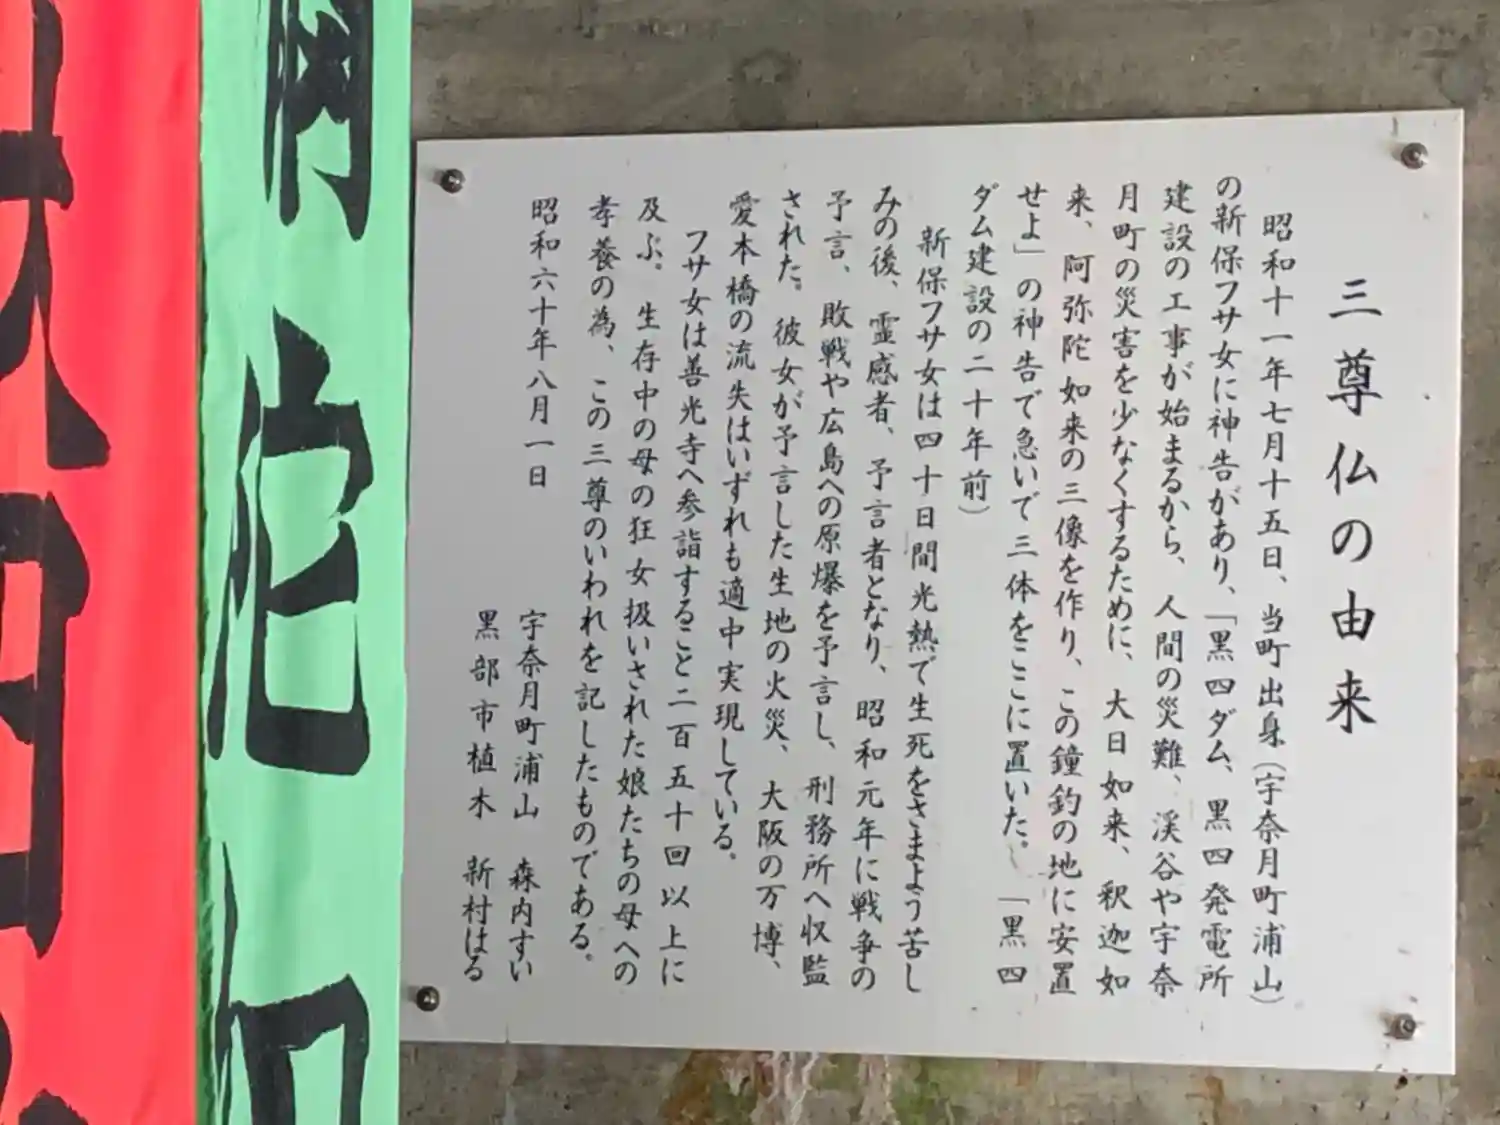 三尊仏の由来
昭和十一年七月十五日、当町出身(宇奈月町浦山)
の新保フサ女に神告があり、「黒四ダム、黒四発電所
建設の工事が始まるから、人間の災難、渓谷や宇奈
月町の災害を少なくするために、大日如来、釈迦如
来、阿弥陀如来の三像を作り、この鐘釣の地に安置
せよ」の神告で急いで三体をここに置いた。「黒四
ダム建設の二十年前)
新保フサ女は四十日間光熱で生死をさまよう苦し
みの後、霊感者、予言者となり、昭和元年に戦争の
予言、敗戦や広島への原爆を予言し、刑務所へ収監
された。彼女が予言した生地の火災、大阪の万博、
愛本橋の流失はいずれも適中実現している。
フサ女は善光寺へ参詣すること二百五十回以上に
及ぶ。生存中の母の狂女扱いされた娘たちの母への
孝養の為、この三尊のいわれを記したものである。
昭和六十年八月一日
宇奈月町浦山 森内すい
黒部市植木 新村はる
陀
如